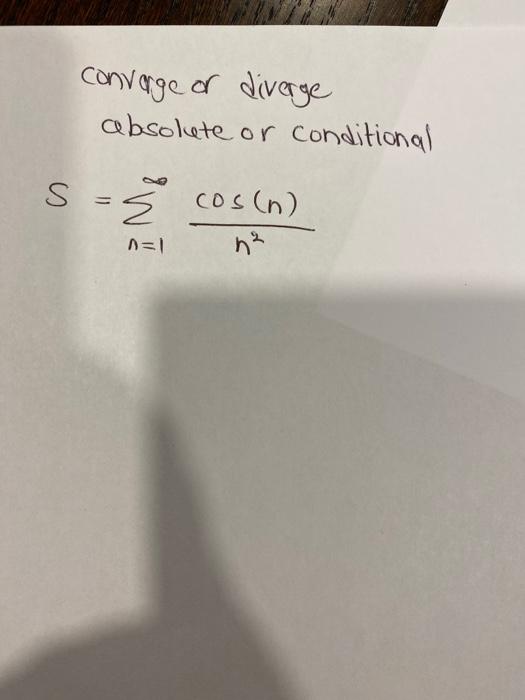 converge or diverge
absolute or conditional
S = ∞ Σ n=1 cos(n) / n²